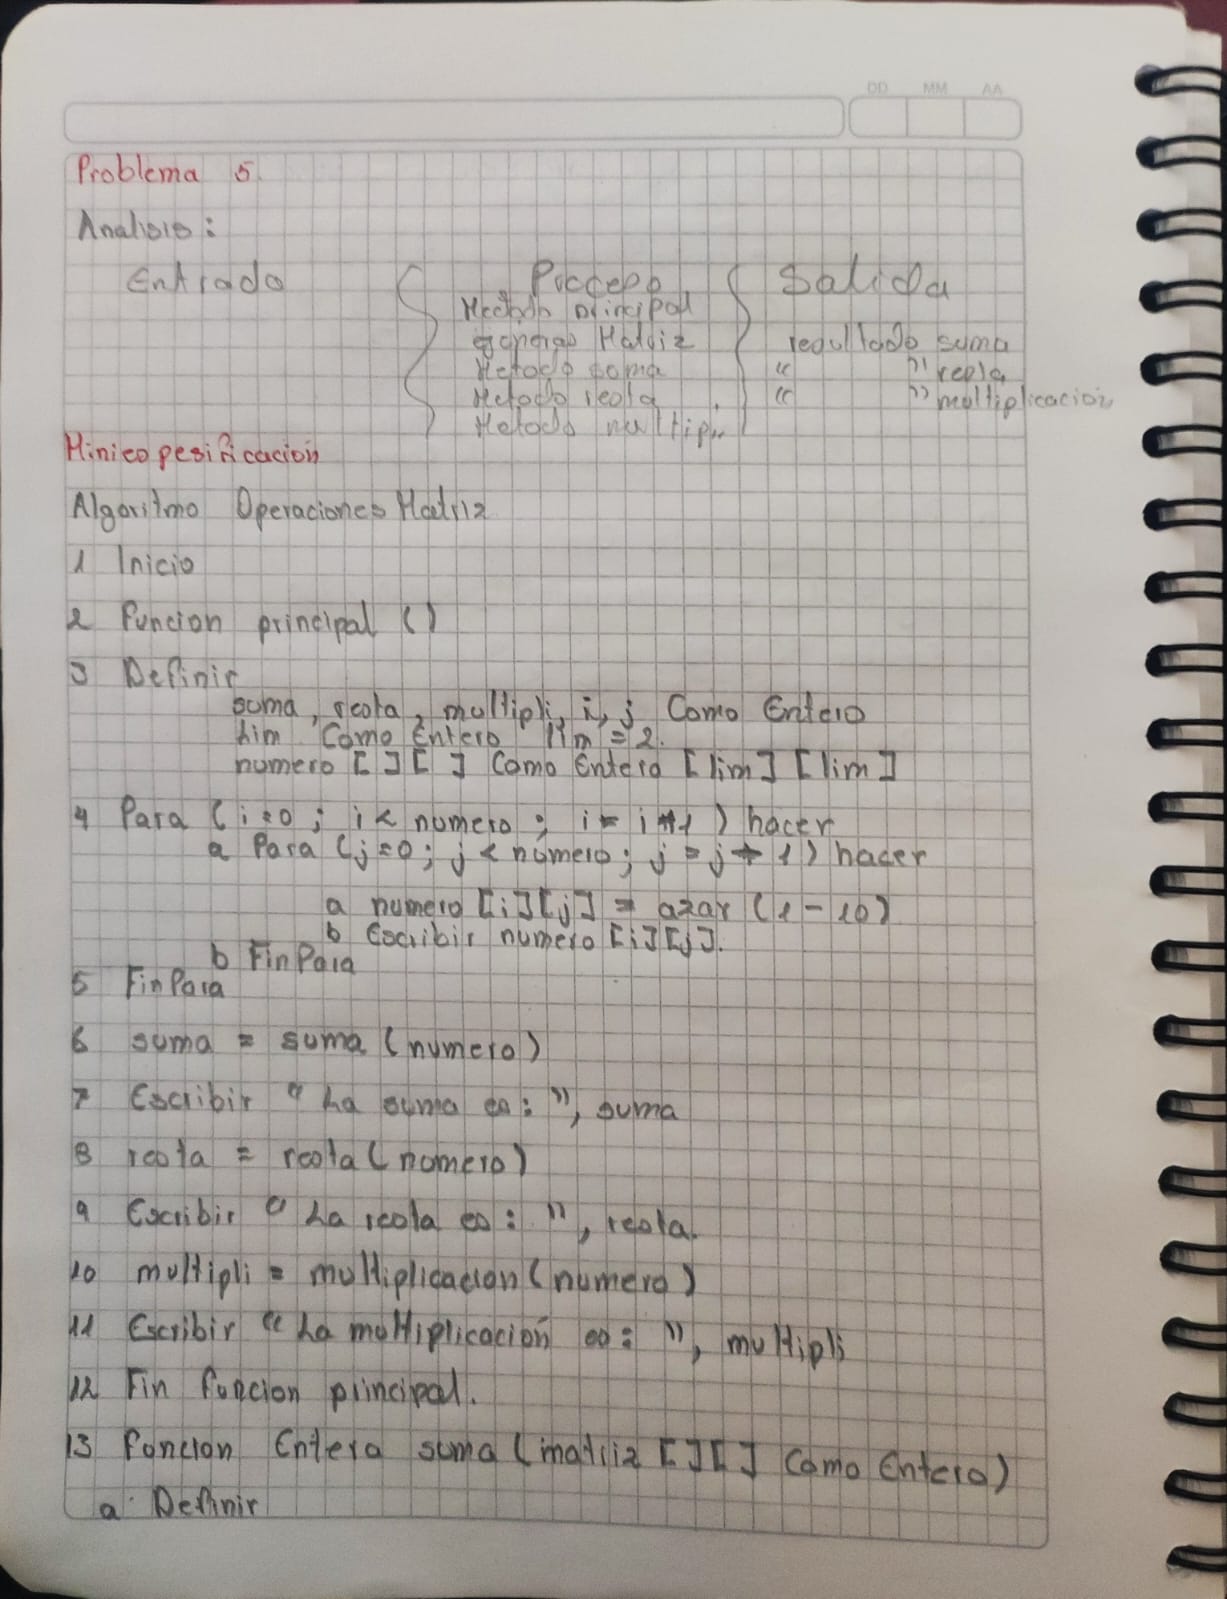 DD MM AA
Problema 5.
Analisis:
Entrada Proceso Salida
Metodo principal
generar Matriz resultado suma
Metodo suma " " resta
Metodo resta " " multiplicación
Metodo multip..
Miniespesificación
Algoritmo Operaciones Matriz
1 Inicio
2 Funcion principal ()
3 Definir
suma, resta, multipli, i, j Como Entero
lim Como Entero lim = 2.
numero [ ][ ] Como Entero [lim] [lim]
4 Para (i=0; i < numero; i = i+1) hacer
a Para (j=0; j < número; j = j + 1) hacer
a numero [i][j] = azar (1-10)
b Escribir numero [i][j].
b FinPara
5 FinPara
6 suma = suma (numero)
7 Escribir " La suma es: ", suma
8 resta = resta (numero)
9 Escribir " La resta es: ", resta.
10 multipli = multiplicacion (numero)
11 Escribir " La multiplicación es: ", multipli
12 Fin funcion principal.
13 Funcion Entera suma (matriz [ ][ ] Como Entero)
a. Definir